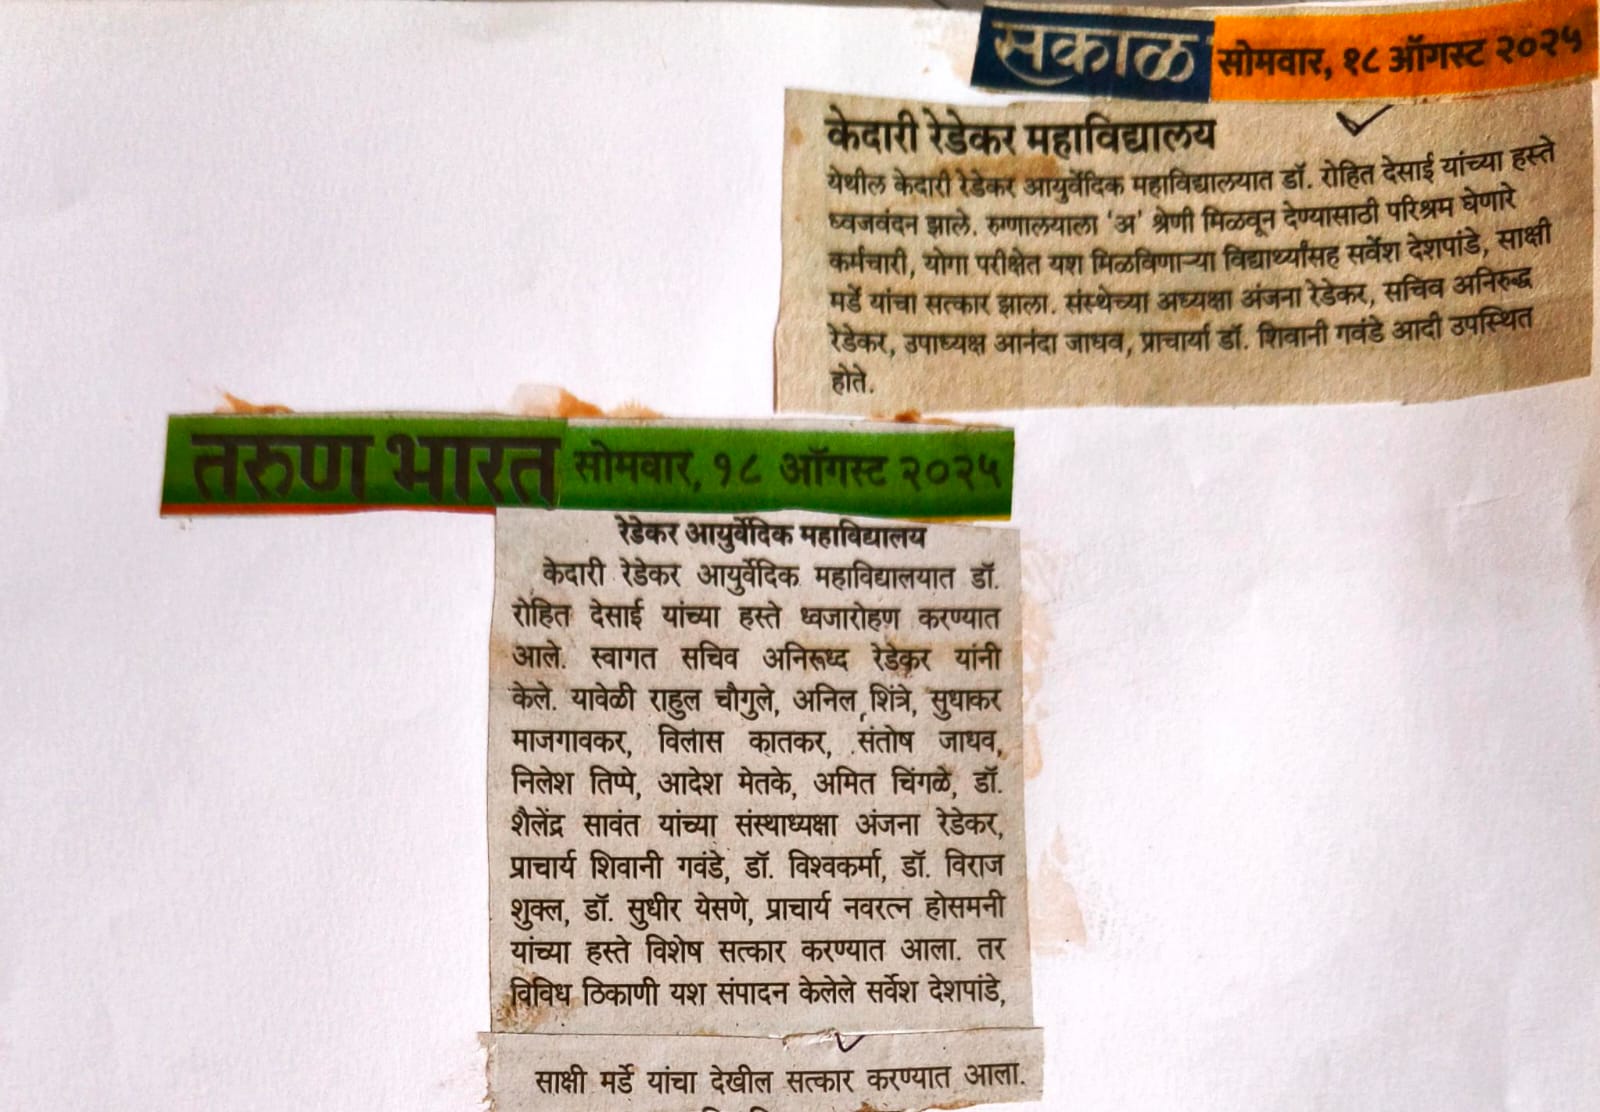 सकाळ सोमवार, १८ ऑगस्ट २०२५
केदारी रेडेकर महाविद्यालय
येथील केदारी रेडेकर आयुर्वेदिक महाविद्यालयात डॉ. रोहित देसाई यांच्या हस्ते
ध्वजवंदन झाले. रुग्णालयाला 'अ' श्रेणी मिळवून देण्यासाठी परिश्रम घेणारे
कर्मचारी, योगा परीक्षेत यश मिळविणाऱ्या विद्यार्थ्यांसह सर्वेश देशपांडे, साक्षी
मर्डे यांचा सत्कार झाला. संस्थेच्या अध्यक्षा अंजना रेडेकर, सचिव अनिरुद्ध
रेडेकर, उपाध्यक्ष आनंदा जाधव, प्राचार्या डॉ. शिवानी गवंडे आदी उपस्थित
होते.
तरुण भारत सोमवार, १८ ऑगस्ट २०२५
रेडेकर आयुर्वेदिक महाविद्यालय
केदारी रेडेकर आयुर्वेदिक महाविद्यालयात डॉ.
रोहित देसाई यांच्या हस्ते ध्वजारोहण करण्यात
आले. स्वागत सचिव अनिरूध्द रेडेकर यांनी
केले. यावेळी राहुल चौगुले, अनिल शिंत्रे, सुधाकर
माजगावकर, विलास कातकर, संतोष जाधव,
निलेश तिप्पे, आदेश मेतके, अमित चिंगळे, डॉ.
शैलेंद्र सावंत यांच्या संस्थाध्यक्षा अंजना रेडेकर,
प्राचार्य शिवानी गवंडे, डॉ. विश्वकर्मा, डॉ. विराज
शुक्ल, डॉ. सुधीर येसणे, प्राचार्य नवरत्न होसमनी
यांच्या हस्ते विशेष सत्कार करण्यात आला. तर
विविध ठिकाणी यश संपादन केलेले सर्वेश देशपांडे,
साक्षी मर्डे यांचा देखील सत्कार करण्यात आला.